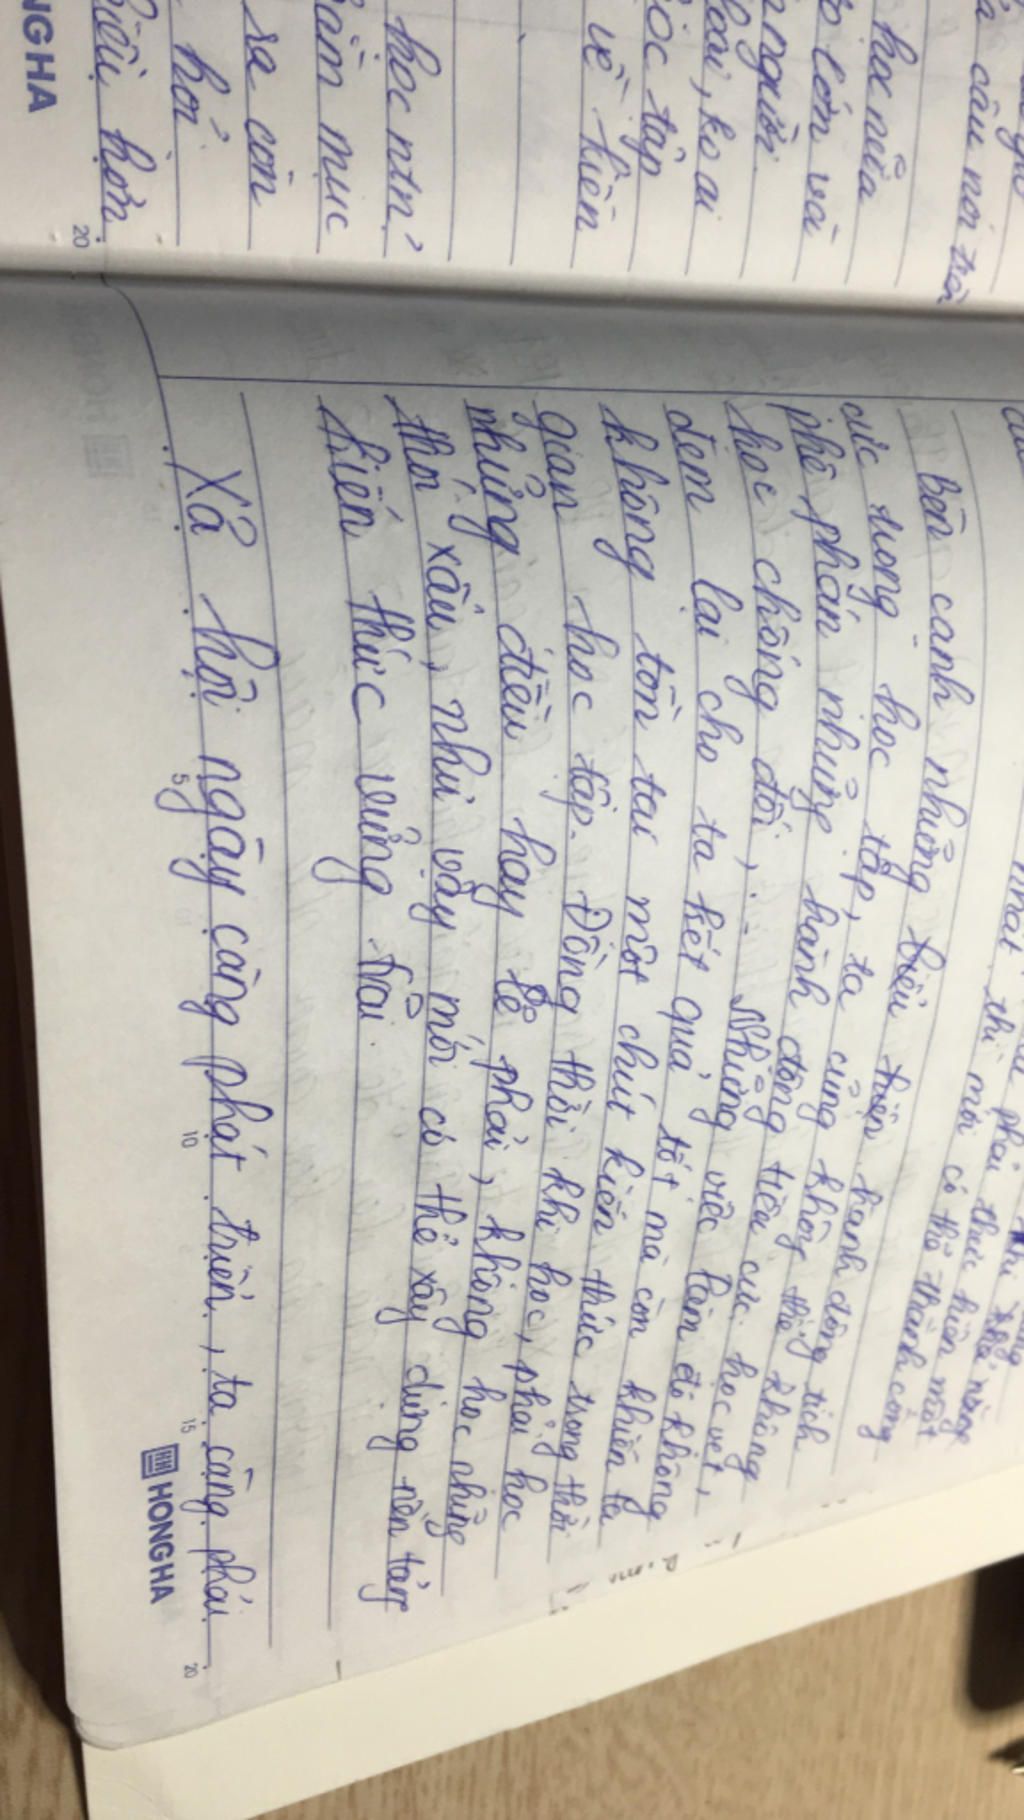 câu nói trên
học nữa
to lớn với
người
hoài, ko ai
học tập
về kiến
học ntn?
tầm mục
ra còn
hỏi
hiểu hơn
NGHA
20
phải thực hiện một
thì mới có thể thành công
Bên cạnh những biểu hiện, hành động tích
cực trong học tập, ta cũng không thể không
phê phán những hành động tiêu cực: học vẹt,
học chống đối,... Những việc làm đó không
đem lại cho ta kết quả tốt mà còn khiến ta
không tồn tại một chút kiến thức trong thời
gian học tập. Đồng thời khi học, phải học
những điều hay lẽ phải, không học những
thói xấu, như vậy mới có thể xây dựng nền tảng
kiến thức vững trãi.
Xã hội ngày càng phát triển, ta càng phải
5 10 15 20
HONG HA